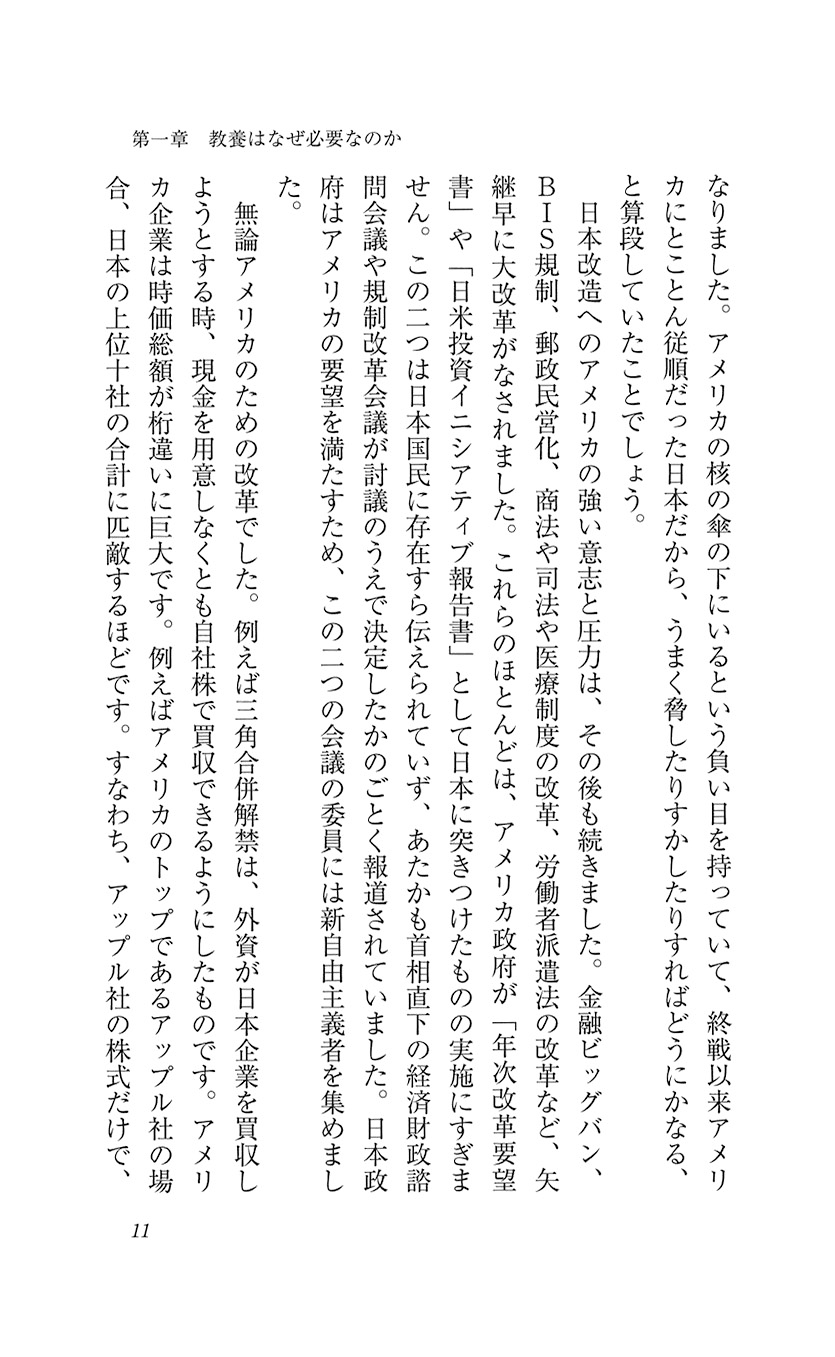 第一章　教養はなぜ必要なのか
なりました。アメリカの核の傘の下にいるという負い目を持っていて、終戦以来アメリ
カにとことん従順だった日本だから、うまく脅したりすかしたりすればどうにかなる、
と算段していたことでしょう。
　日本改造へのアメリカの強い意志と圧力は、その後も続きました。金融ビッグバン、
ＢＩＳ規制、郵政民営化、商法や司法や医療制度の改革、労働者派遣法の改革など、矢
継早に大改革がなされました。これらのほとんどは、アメリカ政府が「年次改革要望
書」や「日米投資イニシアティブ報告書」として日本に突きつけたものの実施にすぎま
せん。この二つは日本国民に存在すら伝えられていず、あたかも首相直下の経済財政諮
問会議や規制改革会議が討議のうえで決定したかのごとく報道されていました。日本政
府はアメリカの要望を満たすため、この二つの会議の委員には新自由主義者を集めまし
た。
　無論アメリカのための改革でした。例えば三角合併解禁は、外資が日本企業を買収し
ようとする時、現金を用意しなくとも自社株で買収できるようにしたものです。アメリ
カ企業は時価総額が桁違いに巨大です。例えばアメリカのトップであるアップル社の場
合、日本の上位十社の合計に匹敵するほどです。すなわち、アップル社の株式だけで、
11